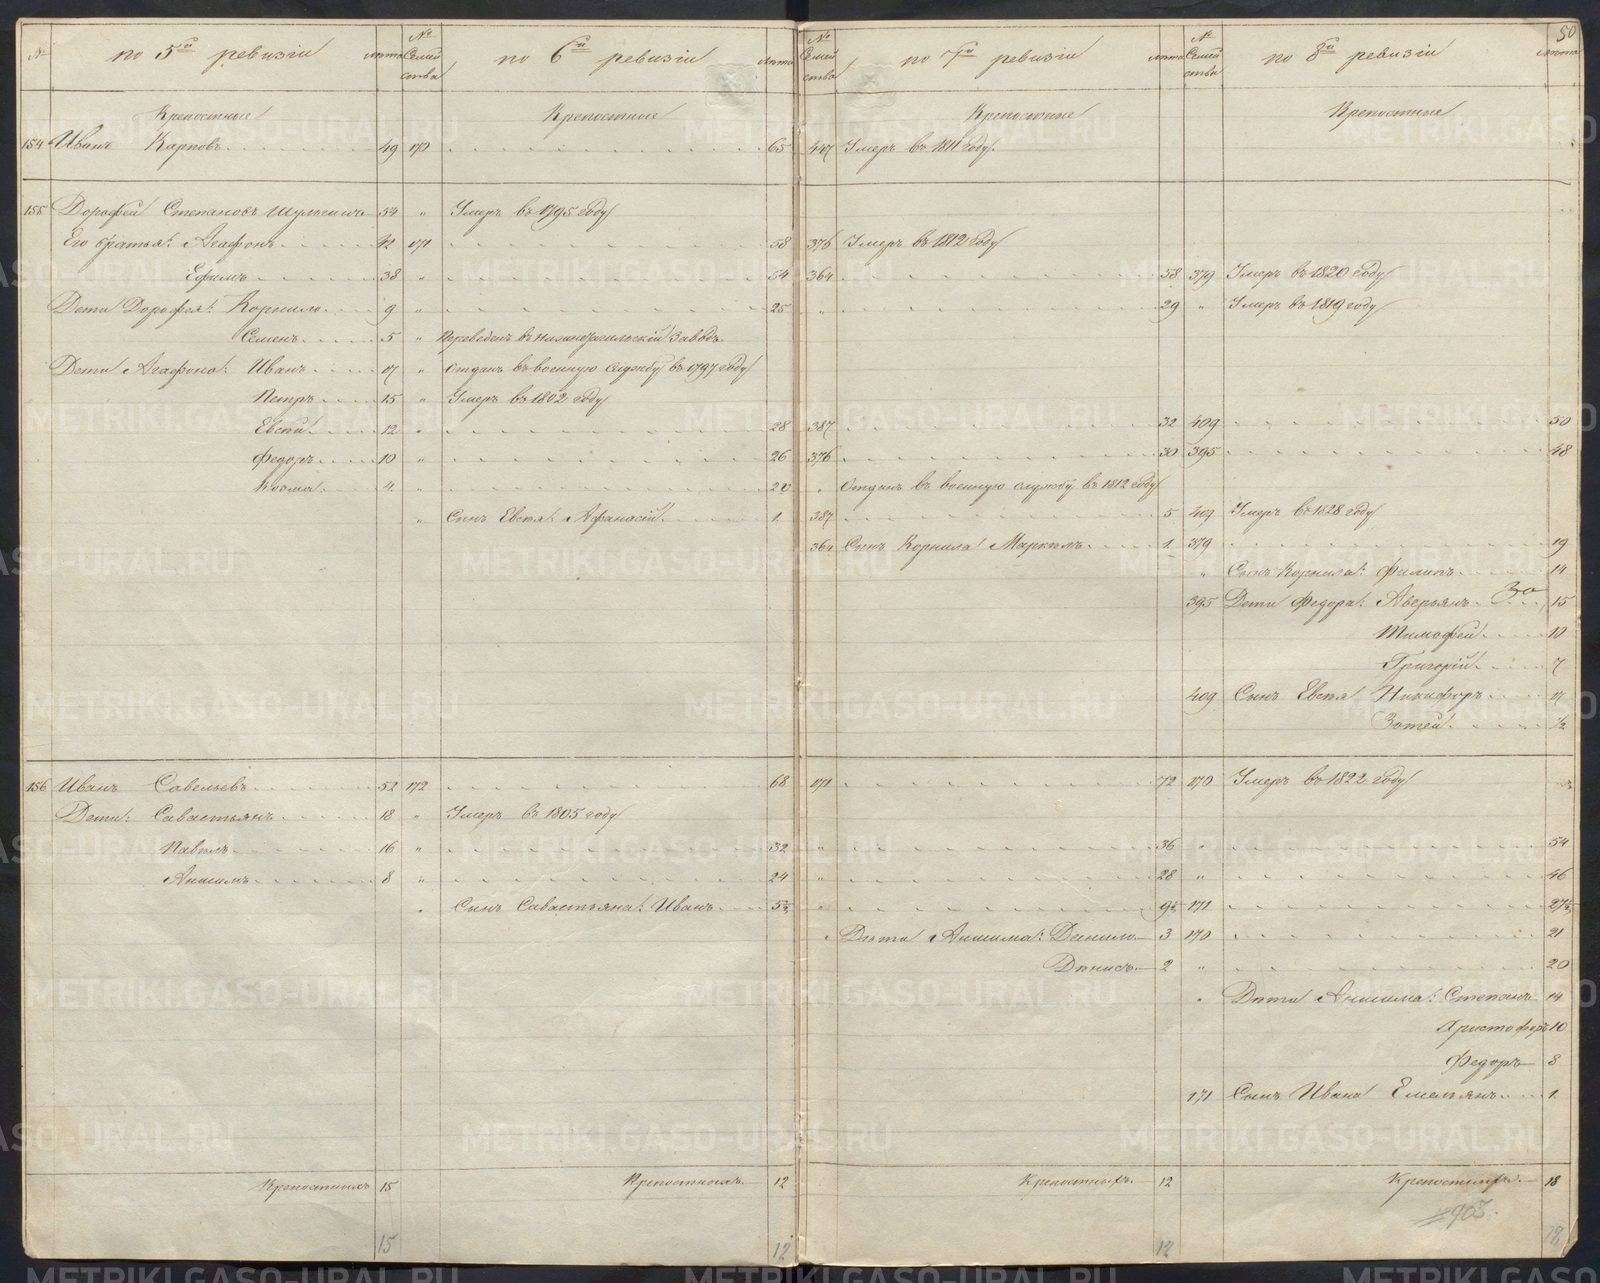 50
№ по 5й ревизіи лѣта № Семей ства по 6й ревизіи лѣта № Семей ства по 7й ревизіи лѣта № Семей ства по 8й ревизіи лѣта
Крепостные Крепостные Крепостные Крепостные
154 Иванъ Карповъ 49 170 65 447 Умеръ въ 1811 году.
155 Дорофей Степановъ Шульгинъ 34 " Умеръ въ 1795 году
Его братья: Агафонъ 42 171 58 376 Умеръ въ 1812 году
Ефимъ 38 " 54 364 58 379 Умеръ въ 1820 году
Дети Дорофея: Корнило 9 " 25 " 29 " Умеръ въ 1819 году
Семенъ 5 " Переведенъ въ Нижнотагильскій заводъ
Дети Агафона: Иванъ 17 " Отданъ въ военную службу въ 1797 году
Петръ 15 " Умеръ въ 1802 году
Евстй 12 " 28 387 32 409 50
Федоръ 10 " 26 376 30 395 48
Козма 4 " 20 " Отданъ въ военную службу въ 1812 году
" Сынъ Евстя: Афанасій 1 387 5 409 Умеръ въ 1828 году
364 Сынъ Корнила: Маркелъ 1 379 19
" Сынъ Корнила: Филипъ 14
395 Дети Федора: Аверьянъ 15
Тимофей 10
Григорій 7
409 Сынъ Евстя Никифоръ 17
Зотей 1/2
156 Иванъ Савельевъ 52 172 68 171 72 170 Умеръ въ 1822 году
Дети: Савастьянъ 18 " Умеръ въ 1805 году
Павелъ 16 " 32 " 36 " 54
Анисимъ 8 " 24 " 28 " 46
" Сынъ Савастьяна: Иванъ 5½ " 9½ 171 27½
" Дѣти Анисима: Данило 3 170 21
Денисъ 2 " 20
" Дѣти Анисима: Степанъ 14
Христофоръ 10
Федоръ 8
171 Сынъ Ивана Емельянъ 1
Крепостныхъ 15 Крепостныхъ 12 Крепостныхъ 12 Крепостныхъ 18
963.
15 12 12 18
METRIKI.GASO-URAL.RU